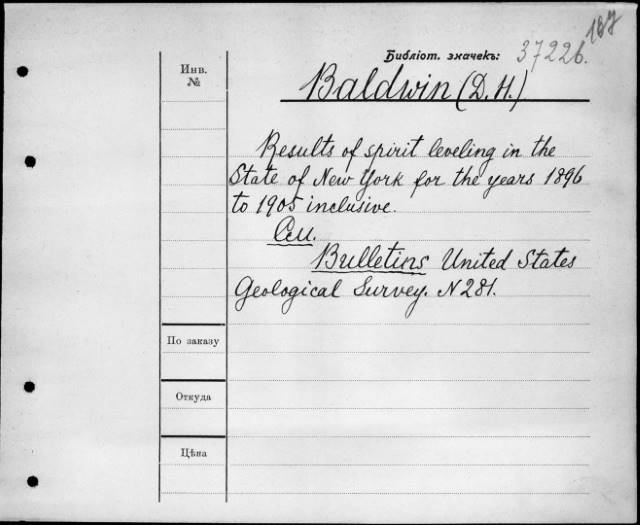 187
Библіот. значекъ: 37226.
Инв.
№
Baldwin (D. H.)
Results of spirit leveling in the
State of New York for the years 1896
to 1905 inclusive.
См.
Bulletins United States
Geological Survey. N 281.
По заказу
Откуда
Цѣна